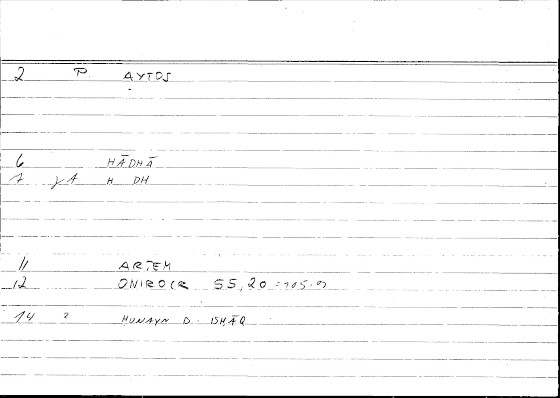 2 P. AYTOS
6 HĀDHĀ
7 yA H DH
11 ARTEM
12 ONIROCR 55,20 = 105.9
14 HUNAYN B. ISHĀQ